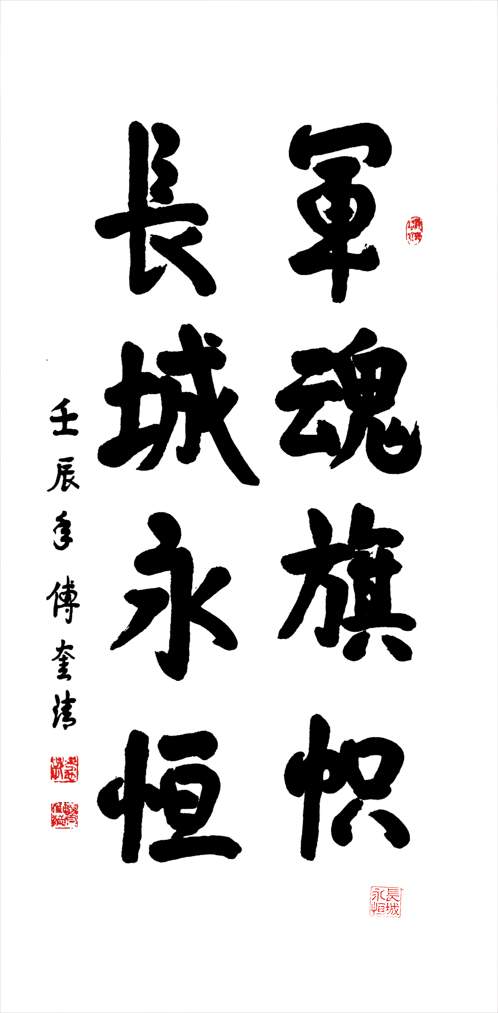 軍魂旗帜
長城永恒
壬辰年傅奎清
長城永恒